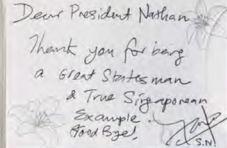 Dear President Nathan
Thank you for being
a Great Statesman
& True Singaporean
Example.
Good Bye!
S.N